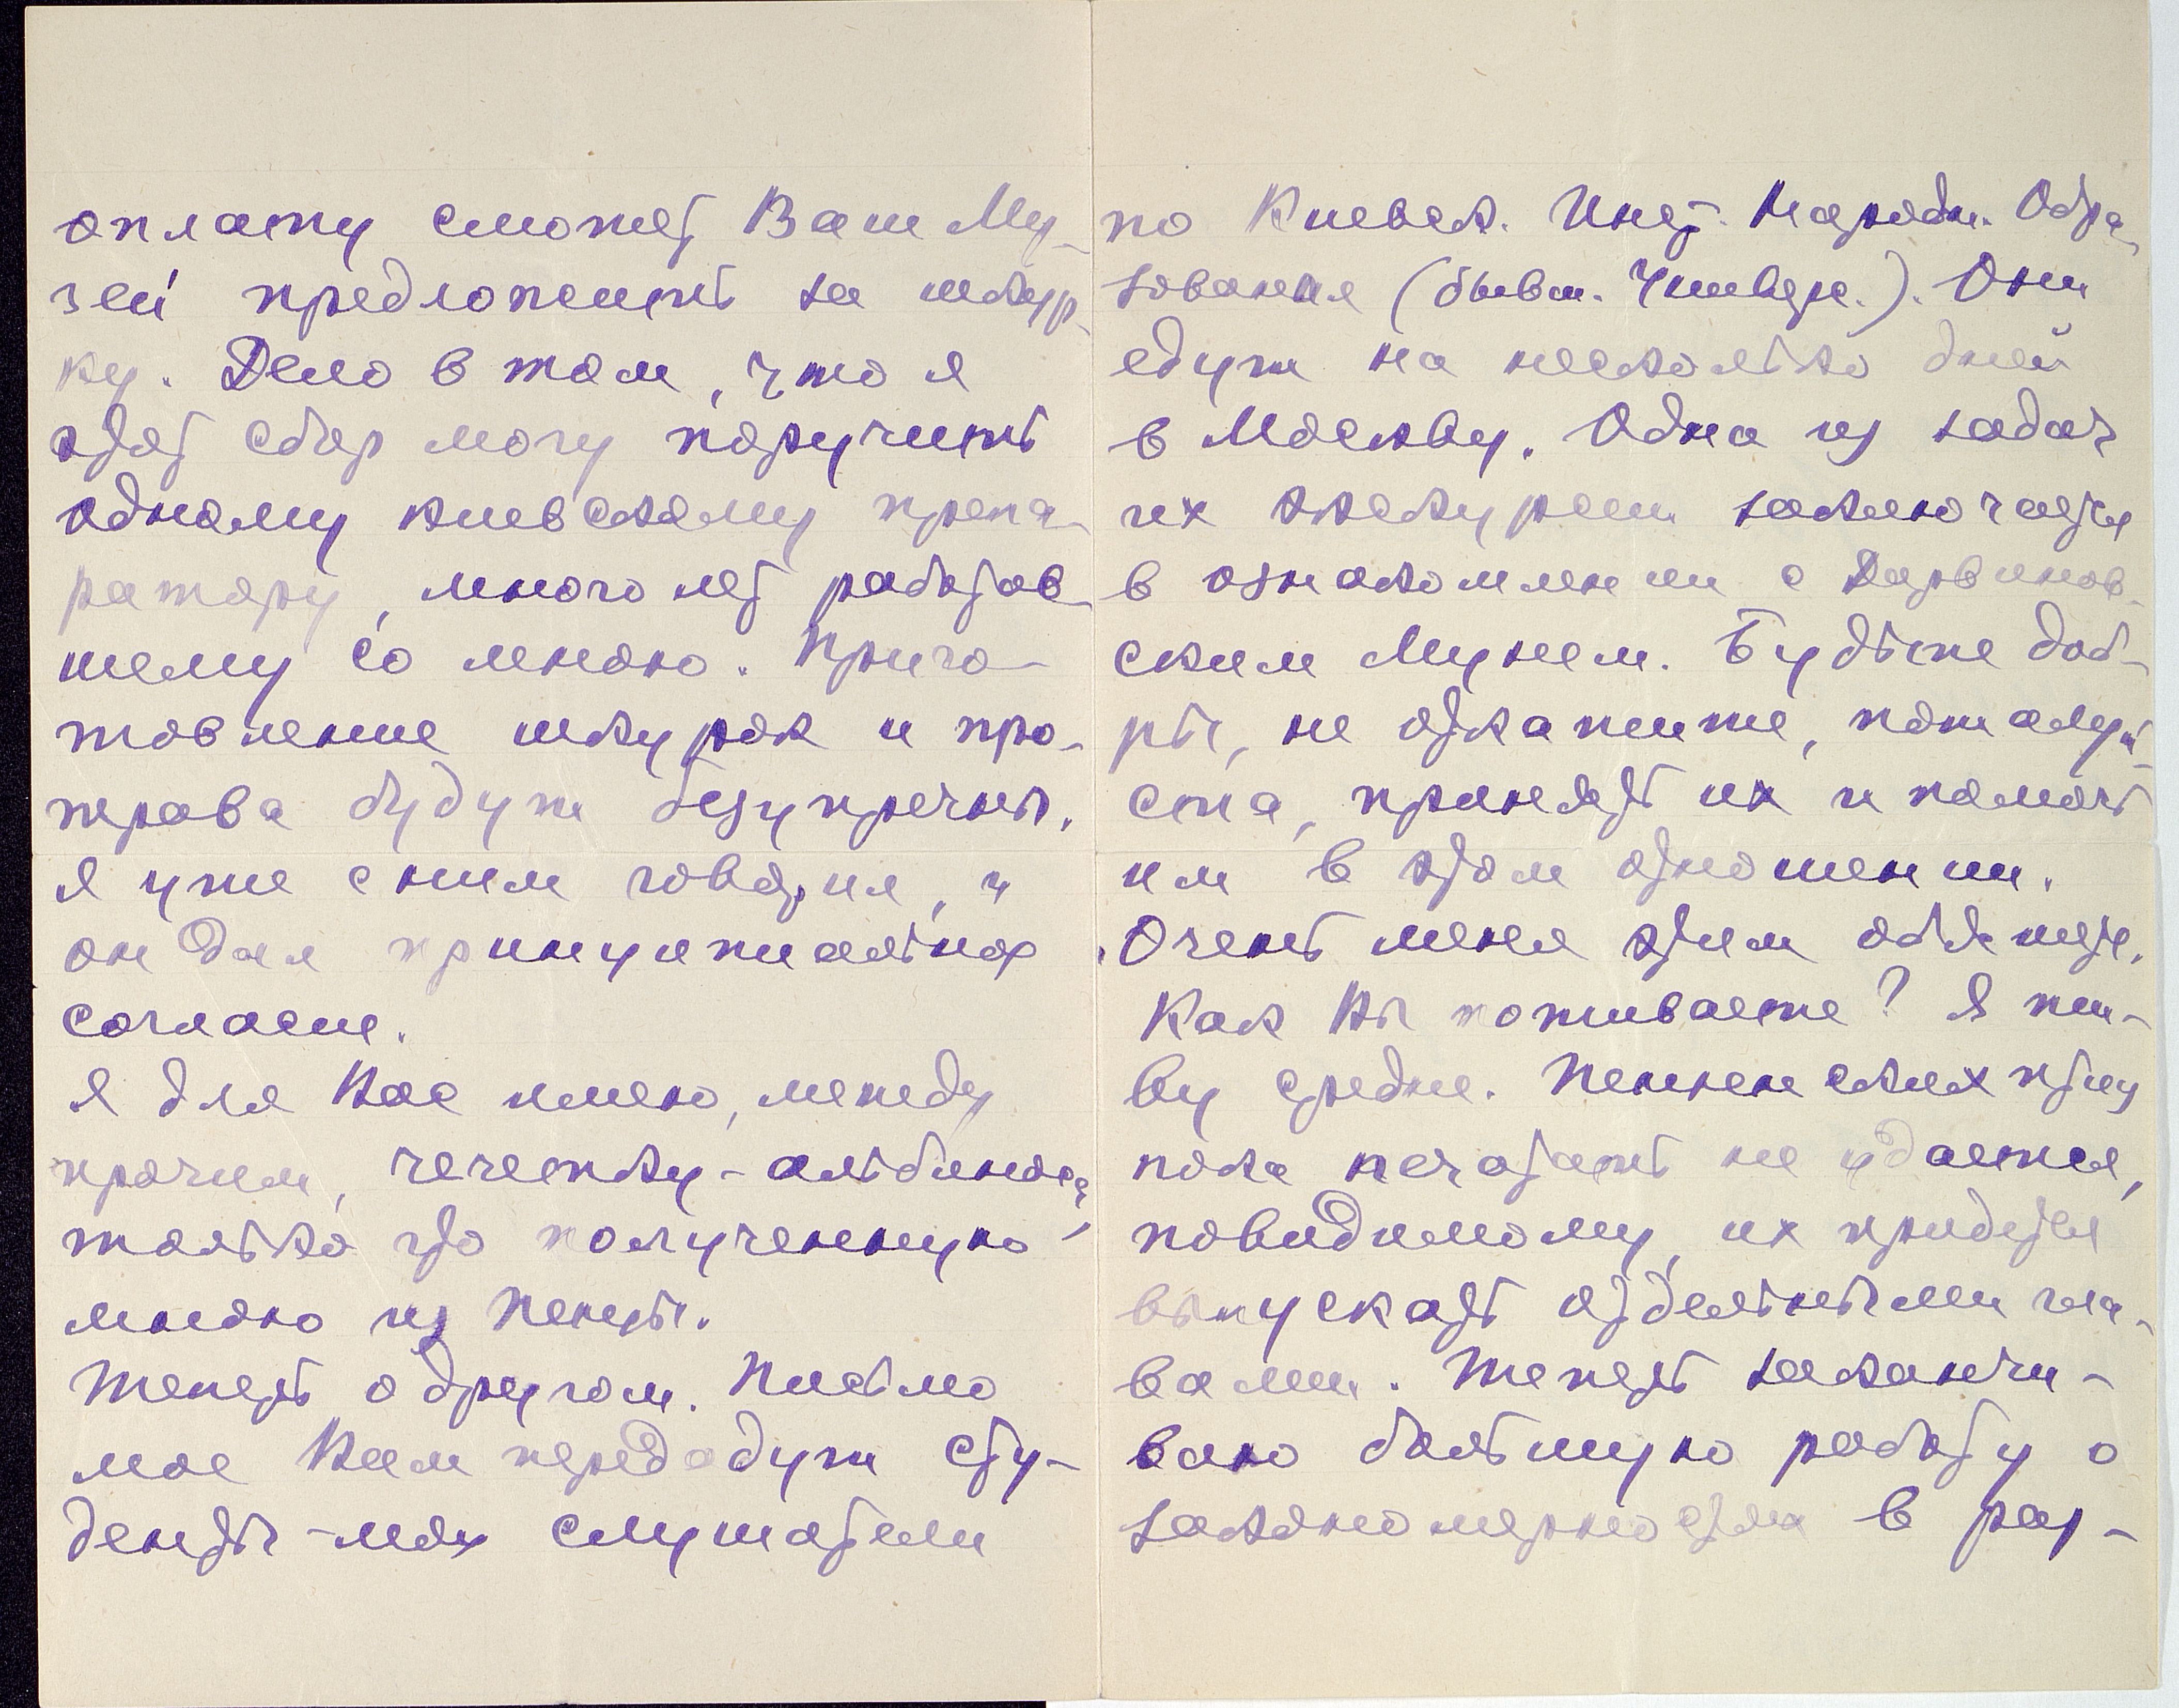 оплату сможет Ваш Му-
зей предложить за шкур-
ку. Дело в том, что я
этот сбор могу поручить
одному киевскому препа-
ратору, много лет работав-
шему со мною. Приго-
товление шкурок и про-
трава будут безупречны.
Я уже с ним говорил, и
он дал принципиальное
согласие.
Я для Вас имею, между
прочим, чечетку-альбиноса,
только что полученную
мною из Пензы.
Теперь о другом. Письмо
мое Вам передадут сту-
денты-мои слушатели
по Киевск. Инст. Народн. Обра-
зования (бывш. Универс.). Они
едут на несколько дней
в Москву. Одна из задач
их экскурсии заключается
в ознакомлении с Дарвинов-
ским Музеем. Будьте доб-
ры, не откажите, пожалуй-
ста, принять их и помочь
им в этом отношении.
Очень меня этим обяжете.
Как Вы поживаете? Я жи-
ву средне. Пензенских птиц
пока печатать не удается,
повидимому, их придется
выпускать отдельными гла-
вами. Теперь заканчи-
ваю большую работу о
закономерностях в рас-